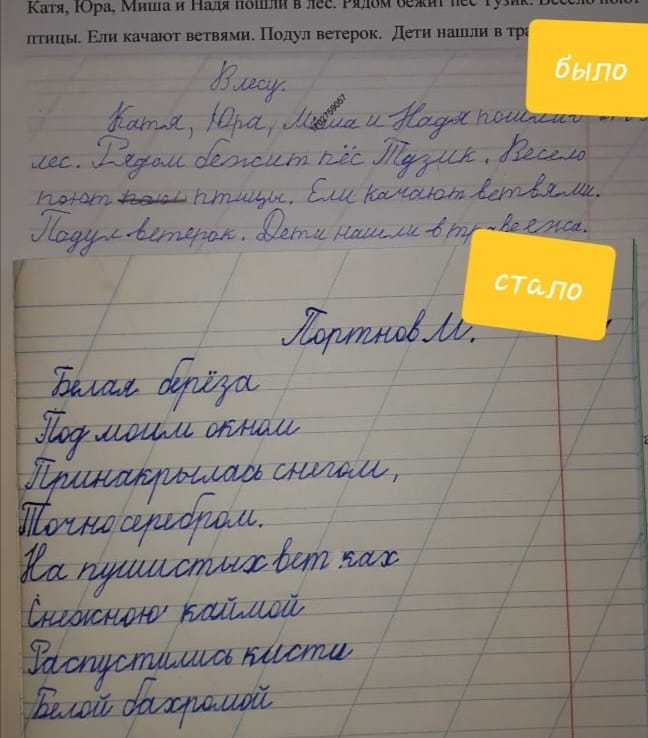 Катя, Юра, Миша и Надя пошли в лес. Рядом бежит пёс Тузик. Весело поют
птицы. Ели качают ветвями. Подул ветерок. Дети нашли в тра
было
В лесу.
702759057
Катя, Юра, Миша и Надя пошли
лес. Рядом бежит пёс Тузик. Весело
поют птицы. Ели качают ветвями.
Подул ветерок. Дети нашли в траве ежа.
стало
Портнов М.
Белая берёза
Под моим окном
Принакрылась снегом,
Точно серебром.
На пушистых ветках
Снежною каймой
Распустились кисти
Белой бахромой